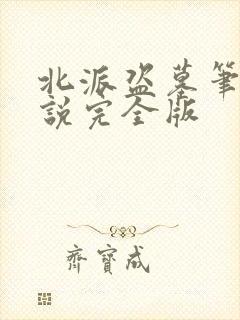 北派盗墓筆
說完全版
齊寶成